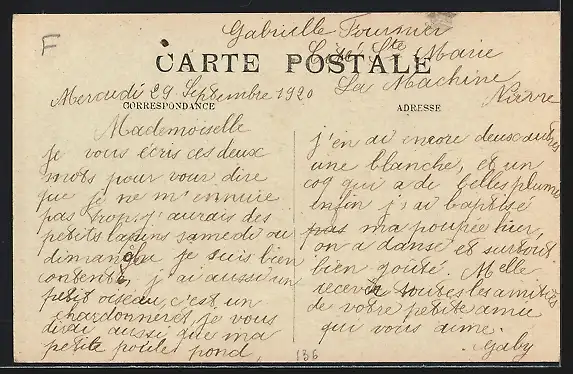 Gabrielle Fournier
Cité Ste Marie
CARTE POSTALE
La Machine
Nièvre
Mercredi 29 Septembre 1920
CORRESPONDANCE
ADRESSE
F
Mademoiselle
je vous écris ces deux
mots pour vour dire
que je ne m'ennuie
pas trop, j'aurais des
petits lapins samedi ou
dimanche je suis bien
contente, j'ai aussi un
petit oiseau, c'est un
chardonneret, je vous
dirai aussi que ma
petite poule pond,
j'en ai encore deux autres
une blanche, et un
coq qui a de belles plumes
enfin j'ai baptisé
pas ma poupée hier,
on a dansé et surtout
bien goûté. Melle
recevez toutes les amitiés
de votre petite amie
qui vous aime.
Gaby
136